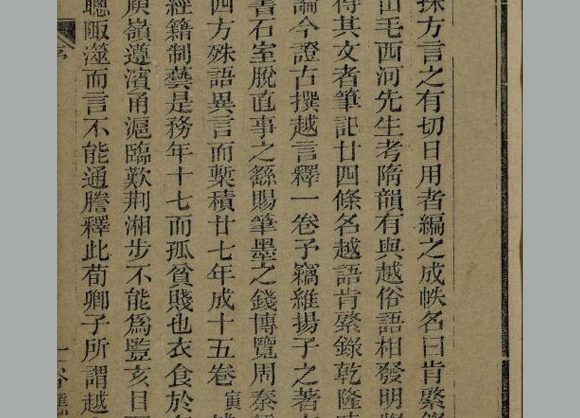 採方言之有切日用者編之成帙名曰肯綮錄
山毛西河先生考隋韻有與越俗語相發明
得其文者筆記廿四條名越語肯綮錄乾隆
論今證古撰越言釋一卷予竊維揚子之著
書石室脫直事之繇賜筆墨之錢博覽周秦
四方殊語異言而槧積廿七年成十五卷
經籍制藝是務年十七而孤貧賤也衣食於
庾嶺遵濱甬滬臨歎荆湘步不能爲豎亥目
聰陬澨而言不能通膽釋此荀卿子所謂越